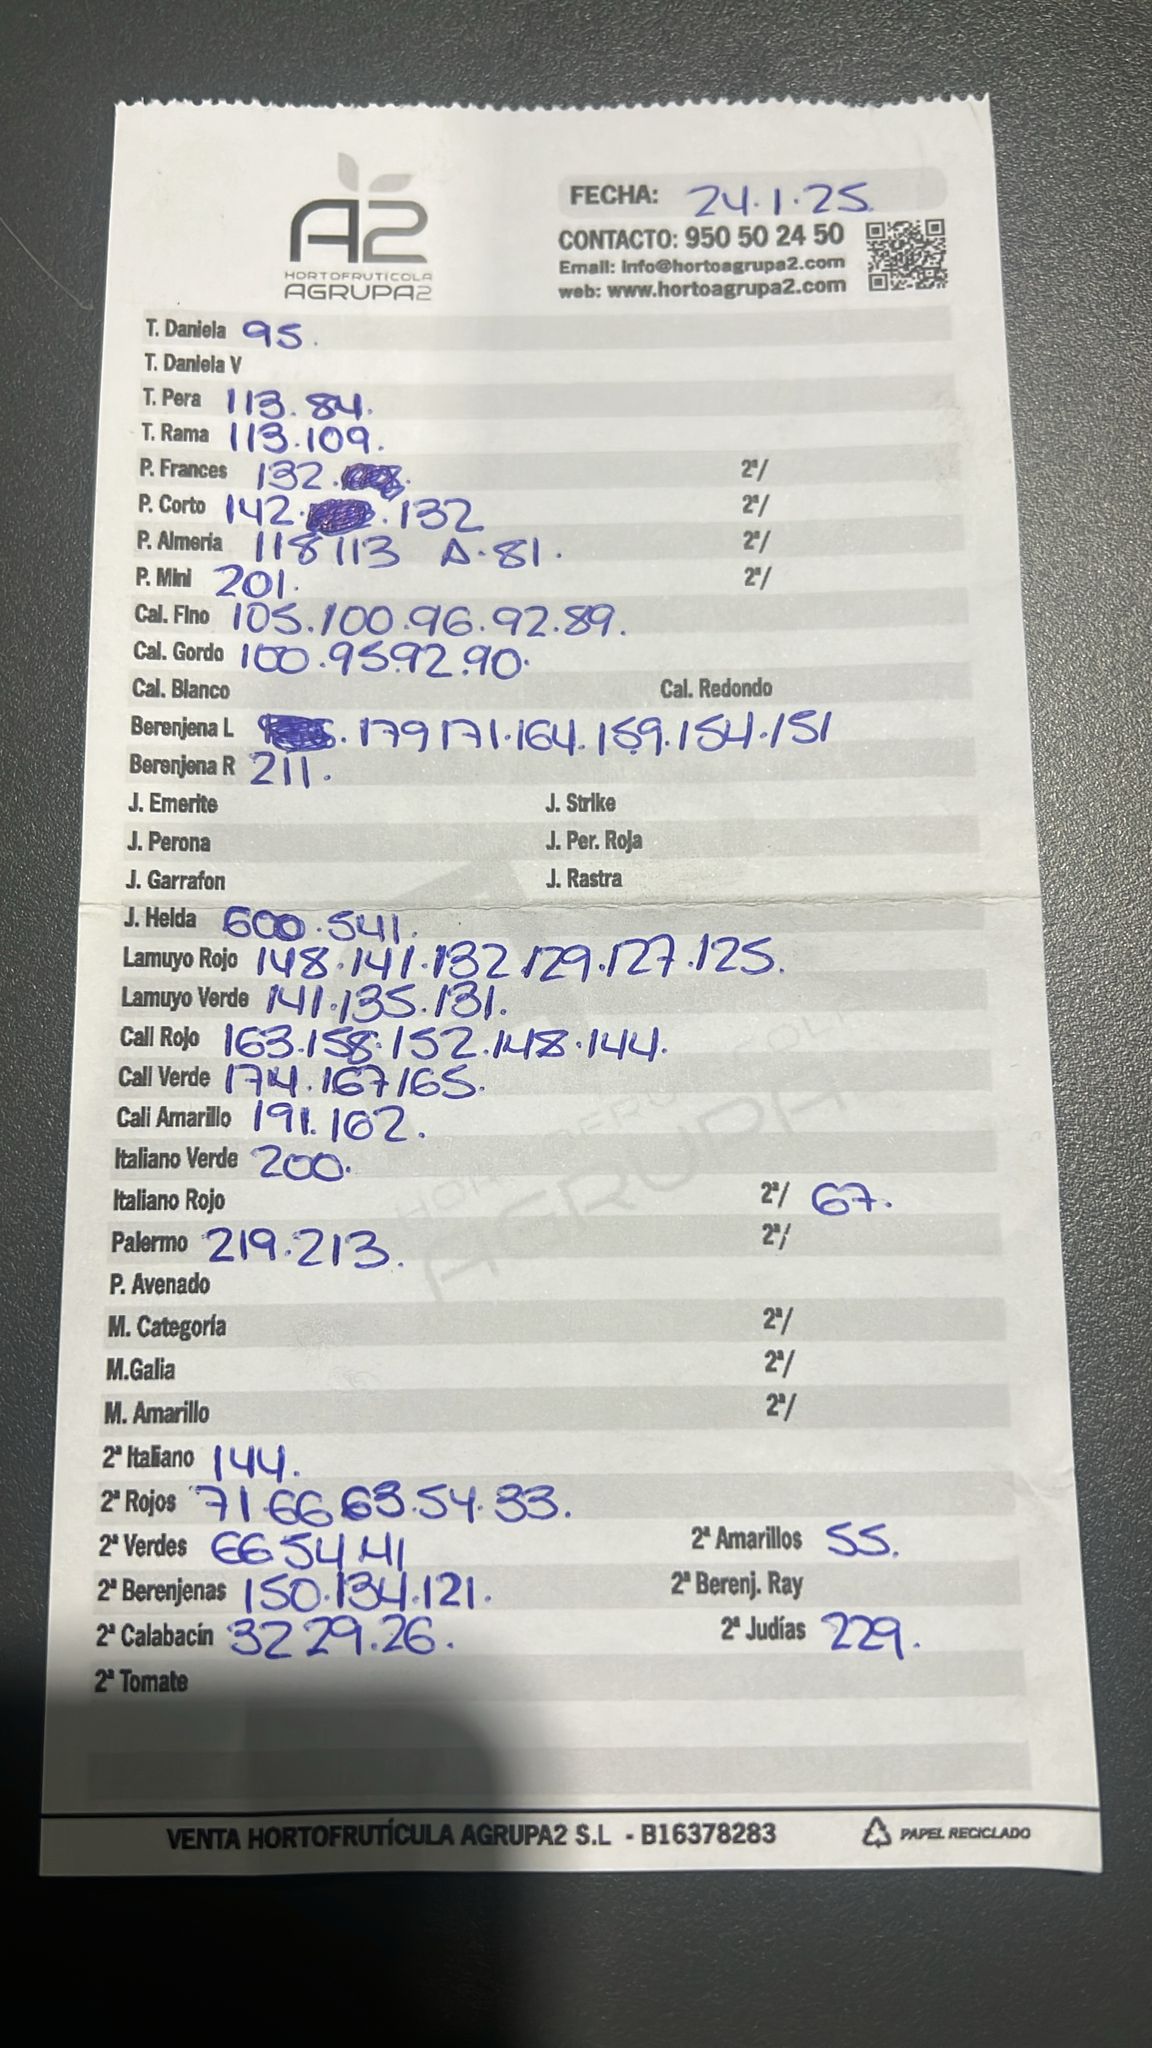 A2
HORTOFRUTÍCOLA
AGRUPA2
FECHA: 24.1.25.
CONTACTO: 950 50 24 50
Email: info@hortoagrupa2.com
web: www.hortoagrupa2.com
T. Daniela 95.
T. Daniela V
T. Pera 113.84.
T. Rama 113.109.
P. Frances 132. 2ª/
P. Corto 142. .132 2ª/
P. Almería 118 113 A.81. 2ª/
P. Mini 201. 2ª/
Cal. Fino 105.100.96.92.89.
Cal. Gordo 100.95.92.90.
Cal. Blanco Cal. Redondo
Berenjena L . 179 171.164.159.154.151
Berenjena R 211.
J. Emerite J. Strike
J. Perona J. Per. Roja
J. Garrafon J. Rastra
J. Helda 600.541.
Lamuyo Rojo 148.141.132.129.127.125.
Lamuyo Verde 141.135.131.
Cali Rojo 163.158.152.148.144.
Cali Verde 174.167 165.
Cali Amarillo 191.162.
Italiano Verde 200.
Italiano Rojo 2ª/ 67.
Palermo 219.213. 2ª/
P. Avenado
M. Categoría 2ª/
M.Galia 2ª/
M. Amarillo 2ª/
2ª Italiano 144.
2ª Rojos 71.66.63.54.33.
2ª Verdes 66 54.41 2ª Amarillos 55.
2ª Berenjenas 150.134.121. 2ª Berenj. Ray
2ª Calabacín 32 29.26. 2ª Judías 229.
2ª Tomate
VENTA HORTOFRUTÍCULA AGRUPA2 S.L - B16378283
PAPEL RECICLADO